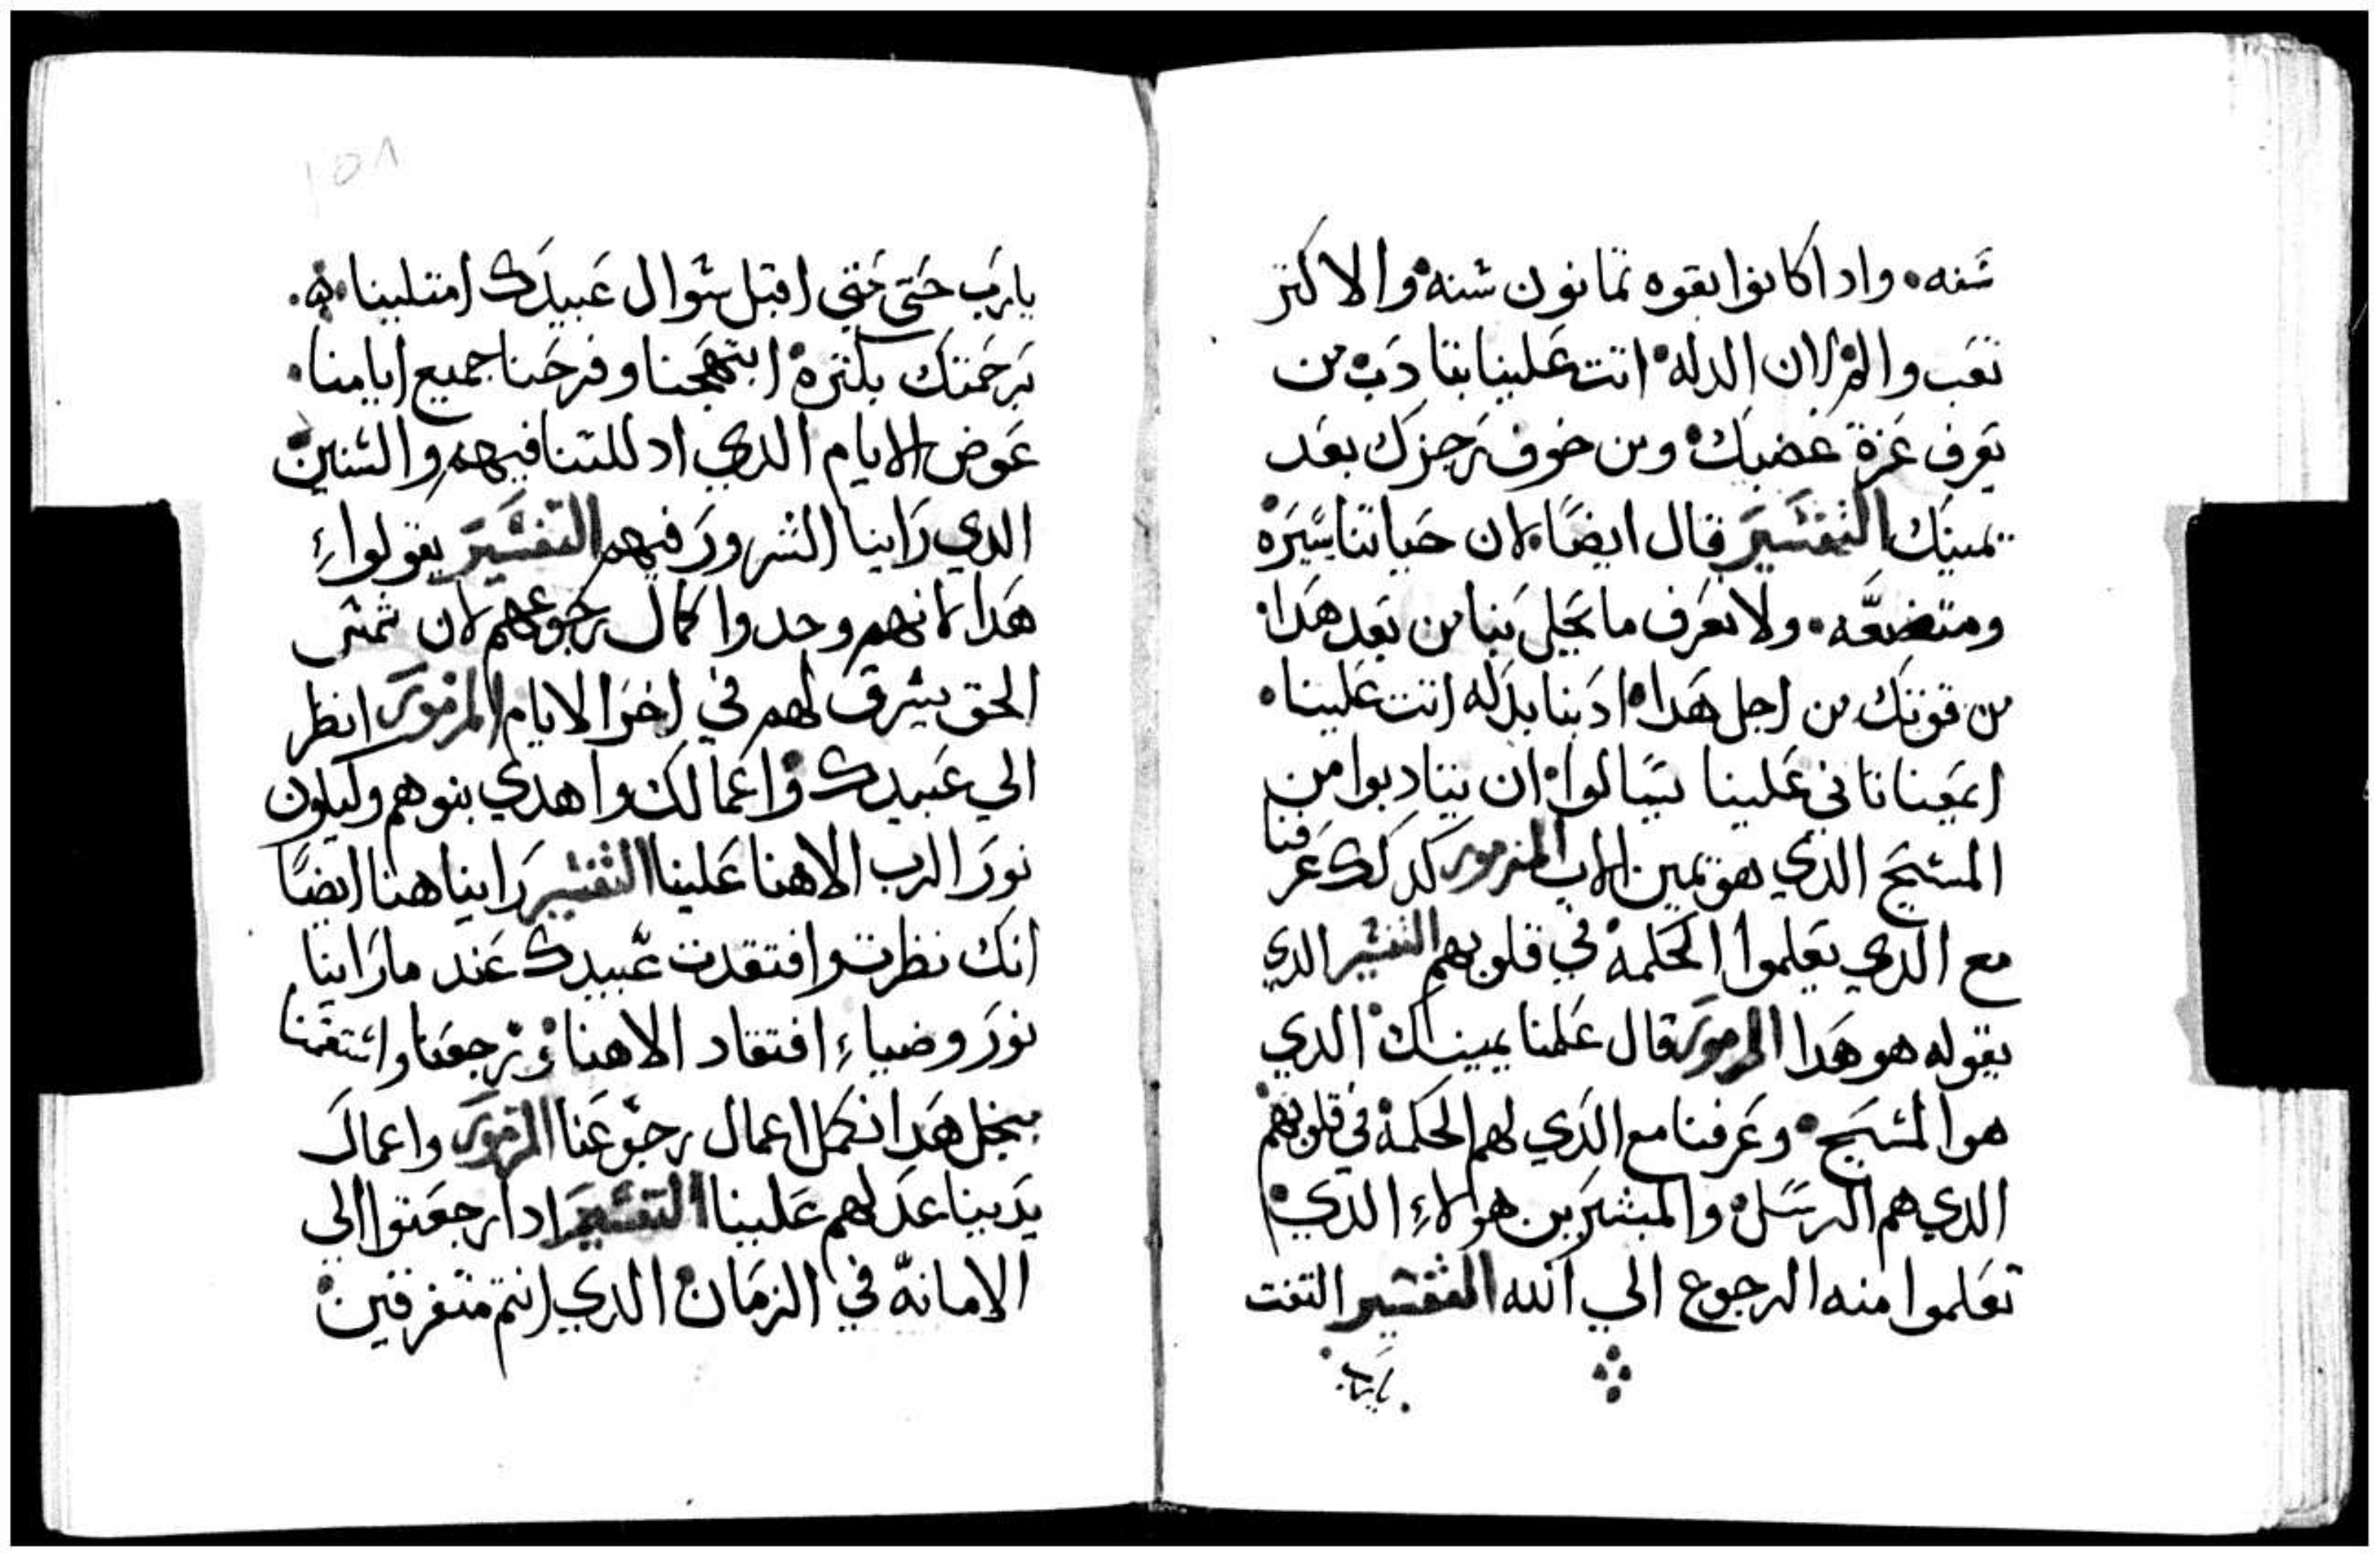 شنه • واداكانوا بقوه تمانون شنه والاكتر
تعب والم لان الدله اتت علينا بتادب من
يعرف عزة غضبك ومن خوف رجزك بعد
يمينك التفشير قال ايضًا لان حياتنا يشيره
ومتضعّه • ولا نعرف ما يجلي بنا من بعد هدا
من قوتك من اجل هدا ادبنا بدله اتت علينا •
اجمعينا تاني علينا يشالوا ان يتادبوا من
المشيح الدي هو يمين الاب المزمور كدلك عرفنا
مع الدي يعلموا الحكمه في قلوبهم التفشير الدي
يقوله هو هدا المزمور قال علمنا يمينك الدي
هو المشيح • وعرفنا مع الدي لهم الحكمة في قلوبهم
الدي هم الرشل والمبشرين هولاءِ الدي
تعلموا منه الرجوع الي الله التفشير التفت
يارب
١٥٨
يارب حتى متي اقبل شوال عبيدك امتلينا •
برحمتك بكتره ابتهجنا وفرحنا جميع ايامنا •
عوض الايام الدي ادللتنا فيهم والشنين
الدي راينا الشرور فيهم التفشير يقولواءِ
هدا لانهم وجدوا كمال رجوعهم لان شمش
الحق يشرق لهم في اخر الايام المزمور انظر
الي عبيدك واعمالك واهدي بنوهم وليكون
نور الرب الاهنا علينا التفشير راينا هنا ايضًا
انك نظرت وافتقدت عبيدك عند ما راينا
نور وضياءِ افتقاد الاهنا ورجعنا واشتقمنا
بنجل هدا نكمل اعمال رجوعنا المزمور واعمال
يدينا عدلهم علينا التفشير ادا رجعتوا الي
الامانه في الزمان الدي انتم متفرقين